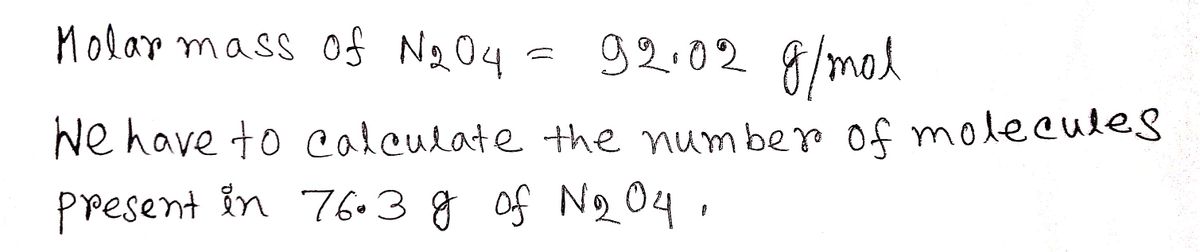 Molar mass of N2O4 = 92.02 g/mol
We have to calculate the number of molecules
present in 76.3 g of N2O4.